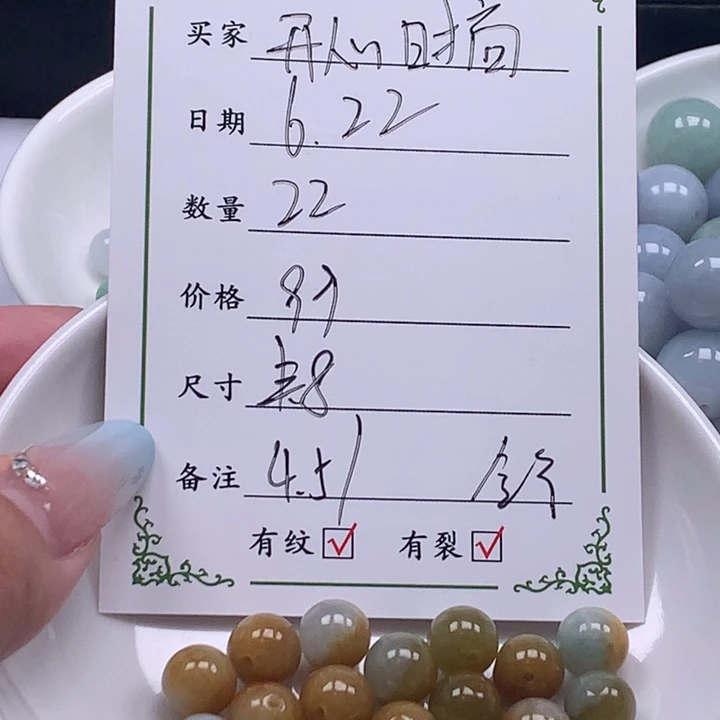 买家 开心日时向
日期 6.22
数量 22
价格
尺寸 8
备注 4.51
有纹 ☑ 有裂 ☑